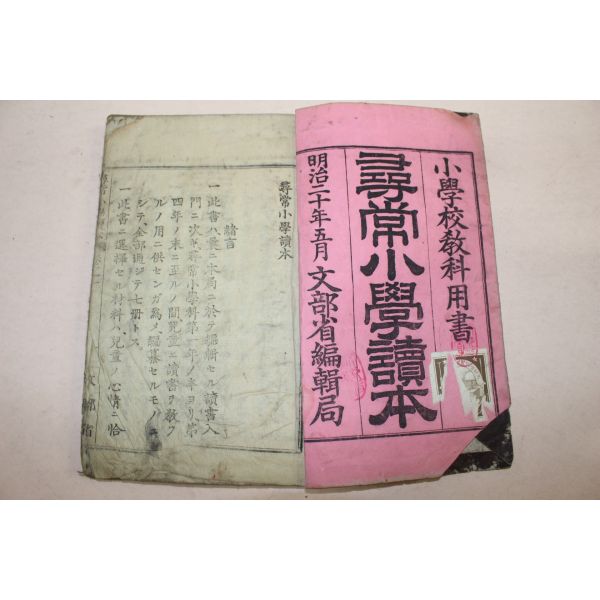 小學校敎科用書
尋常小學讀本
明治二十年五月 文部省編輯局
尋常小學讀本
緒言
一 此書ハ曩ニ本局ニ於テ編輯セル讀書入
門ニ次ギ尋常小學科第一年ノ半ヨリ第
四年ノ末ニ至ルノ間兒童ニ讀書ヲ敎フ
ルノ用ニ供センガ爲メ編纂セルモノニ
シテ、全部通ジテ七册トス
一 此書ニ選擇セル材料ハ、兒童ノ心情ニ恰